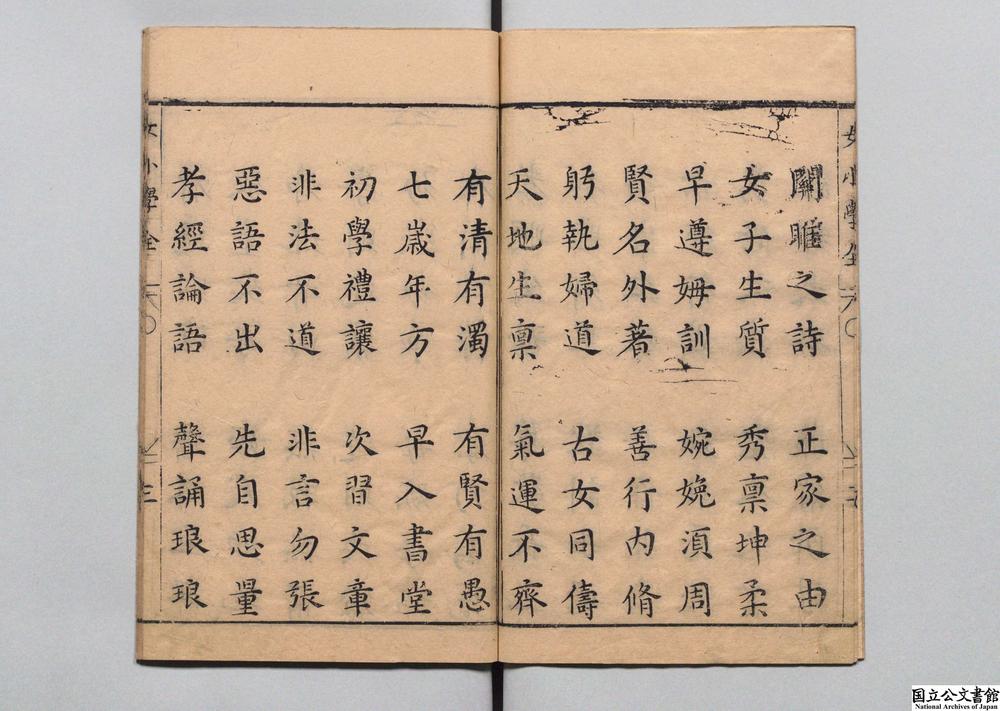 關雎之詩 正家之由
女子生質 秀禀坤柔
早遵姆訓 婉娩須周
賢名外著 善行内脩
躬執婦道 古女同儔
天地生禀 氣運不齊
有清有濁 有賢有愚
七歲年方 早入書堂
初學禮讓 次習文章
非法不道 非言勿張
惡語不出 先自思量
孝經論語 聲誦琅琅
女小學全
女小學全
三
国立公文書館
National Archives of Japan